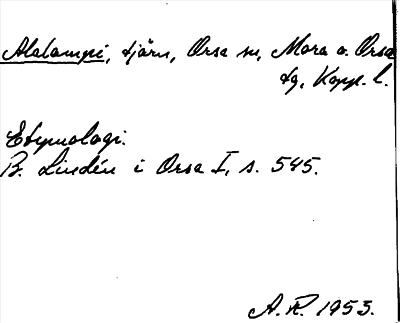 Alalampi, tjärn, Orsa sn, Mora o. Orsa
tg, Kopp. l.
Etymologi.
B. Lindén i Orsa I, s. 545.
A.R. 1953.